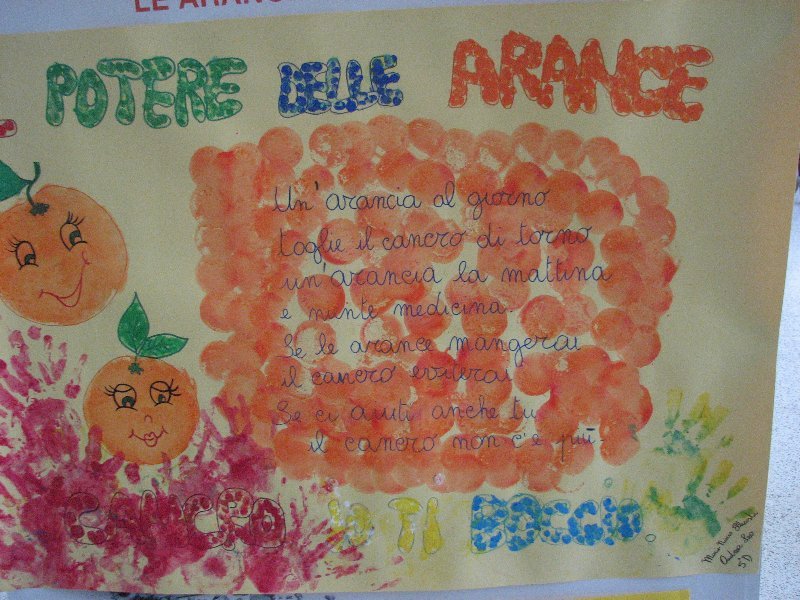 LE ARANC
POTERE DELLE ARANCE
Un'arancia al giorno
toglie il cancro di torno
un'arancia la mattina
e niente medicina.
Se le arance mangerai
il cancro eviterai
Se ci aiuti anche tu
il cancro non c'è più.
CANCRO IO TI BOCCIO
5°D